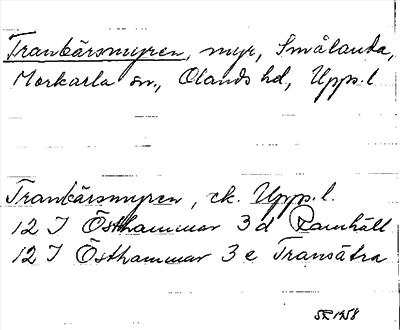 Tranbärsmyren, myr, Smålanda,
Morkarla sn, Olands hd, Upps. l.
Tranbärsmyren, ek. Upps. l.
12 I Östhammar 3 d Ramhäll
12 I Östhammar 3 e Transätra